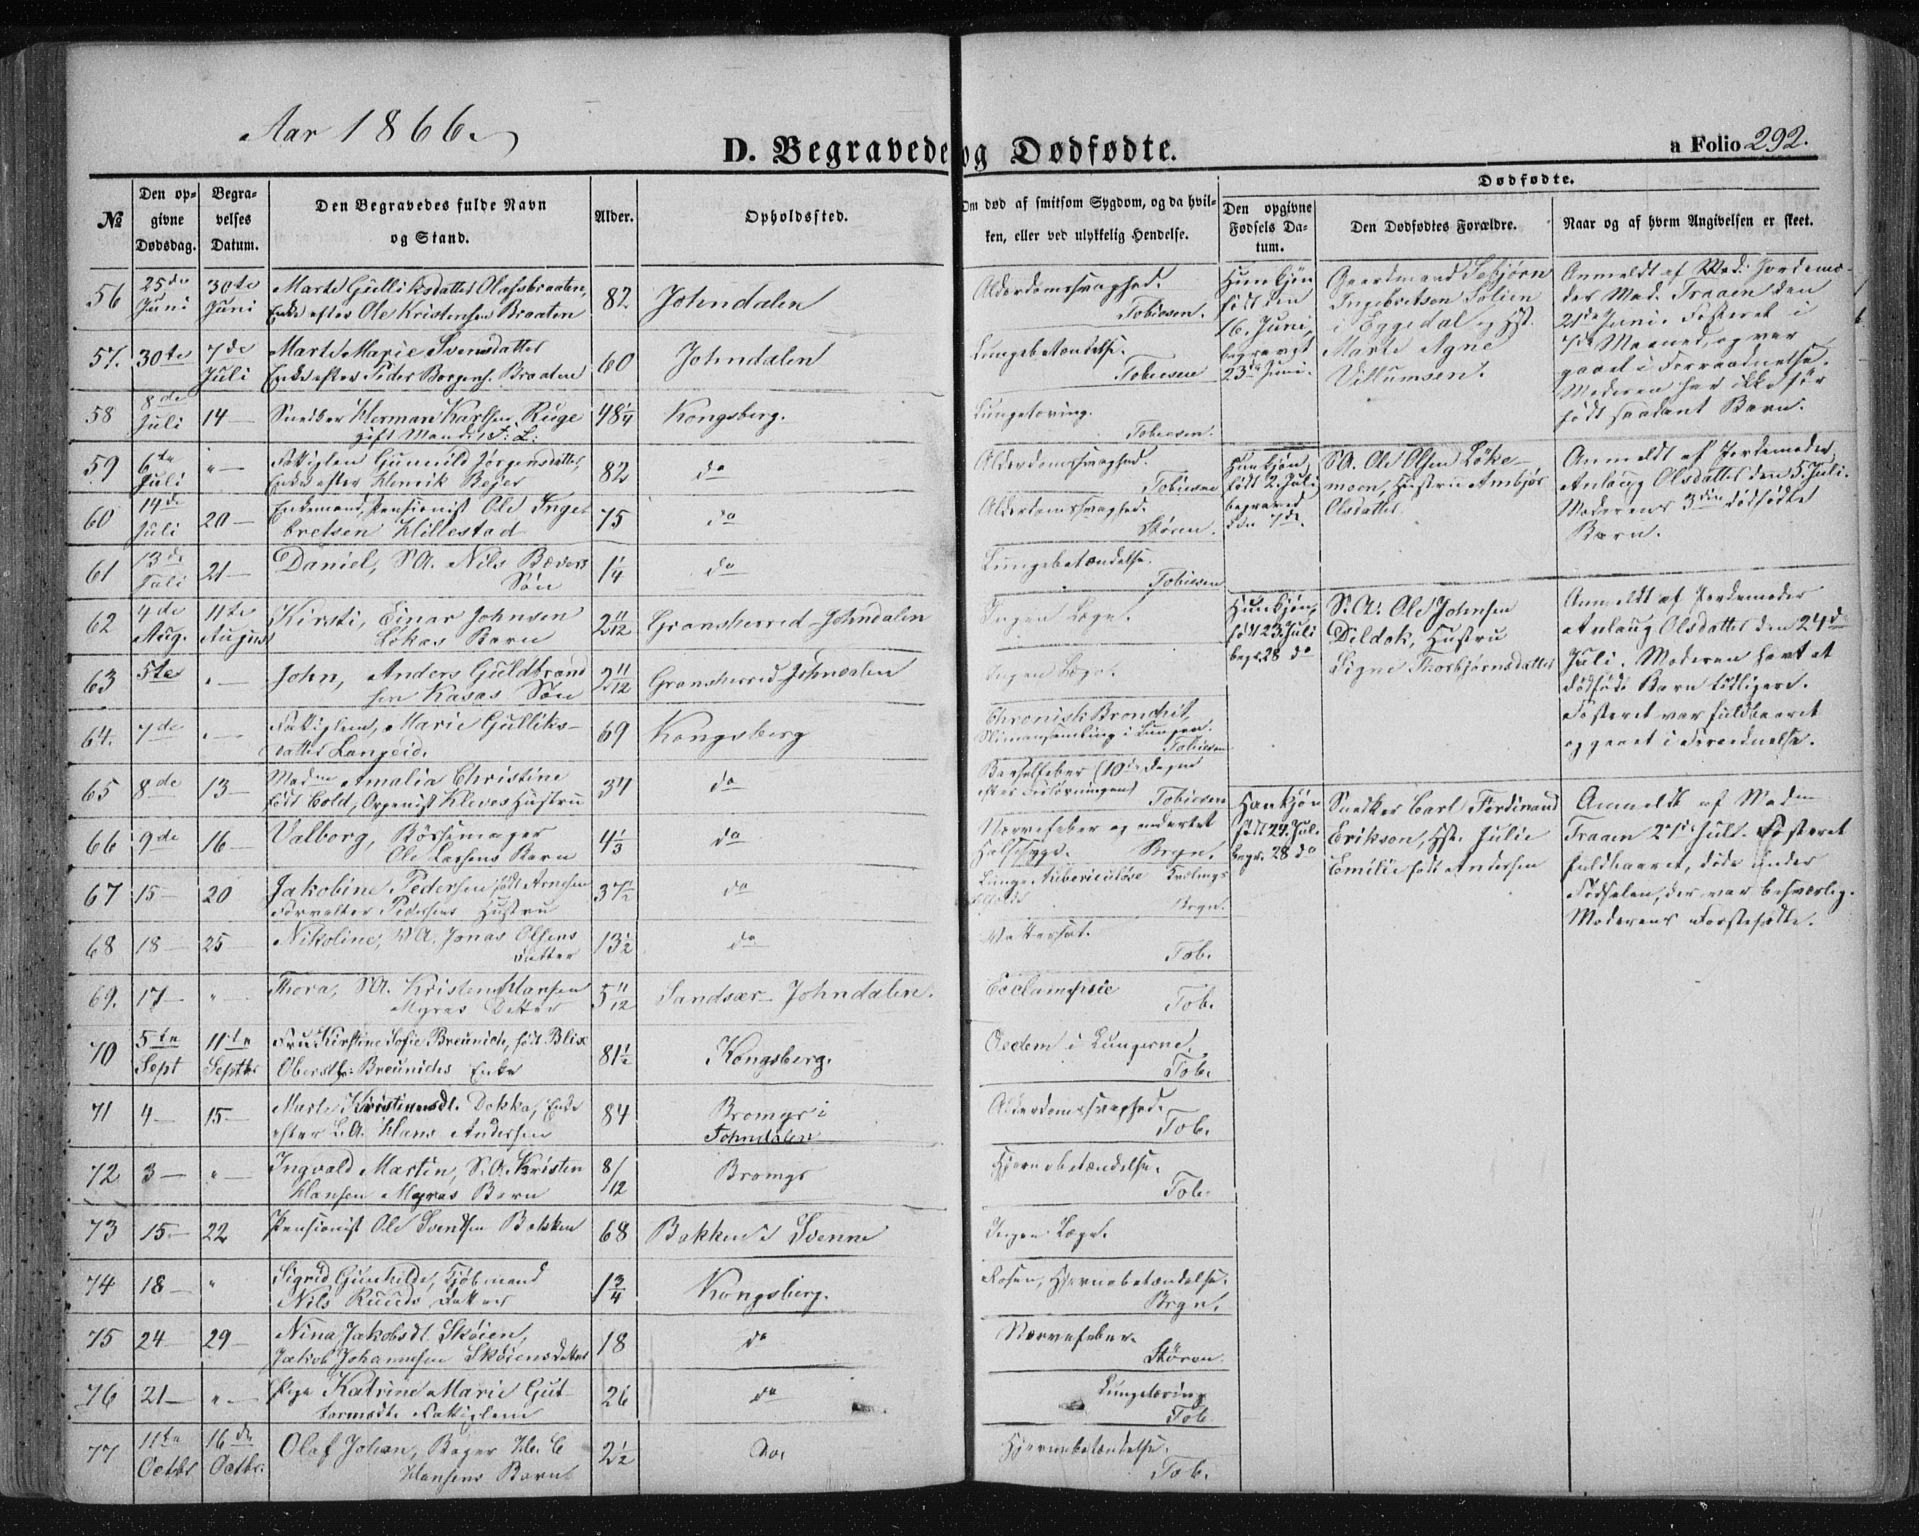 Aar 1866.
D. Begravede og Dødfødte.
a Folio 292.
№
Den opgivne Dødsdag.
Begravelses Datum.
Den Begravedes fulde Navn og Stand.
Alder.
Opholdssted.
Om død af smitsom Sygdom, og da hvilken, eller ved ulykkelig Hendelse.
Dødfødte.
Den opgivne Fødsels Datum.
Den Dødfødtes Forældre.
Naar og af hvem Angivelsen er skeet.
56 25de Juni 30te Juni Marte Gulliksdatter Olafsbraaten, Enke efter Ole Kristensen Braaten 82 Johndalen Alderdomssvaghed. Tobiesen.
57. 30te 7de Juli Marte Marie Svensdatter Enke efter Peder Borgens. Braaten 60 Johndalen Lungebetændelse. Tobiesen
58 8de Juli 14 — Snedker Herman Karlsen Ruge gift Mand 48¼ Kongsberg. Lungetæring. Tobiesen.
59 6te Juli " — Fattiglem Gunnild Jørgensdatter, Enke efter Henrik Bejer 82 do Alderdomssvaghed. Tobiesen
60 14de Juli 20 — Enkemand, Pensionist Ole Ingebretsen Hillestad 75 do Alderdomssvaghed. Støren.
61 13de Juli 21 — Daniel, S.A. Nils Bævers Søn 1¼ do Lungebetændelse. Tobiesen
62 4de Aug. 11te August Kirsti, Einar Johnsen Løkas Barn 2 11/12 Gransherred - Johndalen Ingen Læge.
63 5te " — John, Anders Guldbrandsen Kasas Søn 2 11/12 Gransherred Johndalen Ingen Læge.
64. 7de " — Fattiglem, Marie Gulliksdatter Langeid. 69 Kongsberg Chronisk Bronchit, Slimansamling i Lungen. Tobiesen
65 8de 13 — Madme Amalia Christine født Cold, Organist Kleves Hustru 34 do Barselfeber (10de Dagen efter Forløsningen) Tobiesen
66 9de 16 — Valborg, Børsemager Ole Larsens Barn 4⅓ do Nervefeber og endertet Halssyge. Brgn.
67 15 — 20 Jakobine Pedersen født Arnesen Forvalter Pedersens Hustru 37½ do Lunge Tuberculose Brgn.
68 18 — 25 — Nikoline, S.A. Jonas Olsens Datter 13½ do Vattersot. Tob.
69. 17 — " — Thora, S.A. Kristen Hansen Myras Datter 5 11/12 Sandsær - Johndalen. Ecclampsie Tob.
70 5te Sept 11te Septbr Fru Kirstine Sofie Breunich, født Blix Oberstl: Breunichs Enke 81½ Kongsberg. Oedem i Lungerne, Tob.
71 4 — 15 — Marte Kristensdt. Dokka, Enke efter L.A. Hans Andersen 84 Bromyr i Johndalen Alderdomssvaghed. Tob.
72 3 — " — Ingvald Martin, S.A. Kristen Hansen Myras Barn 8/12 Bromyr Hjernebetændelse. Tob.
73 15 — 22 Pensionist Ole Svendsen Bakken 68 Bakken i Svenne Ingen Læge.
74 18 — " Sigrid Gunhilde, Kjøbmand Nils Ruuds Datter 1¾ Kongsberg. Rosen, Hjernebetændelse. Brgn.
75 24 29 — Nina Jakobsdt. Skøien, Jakob Johannesen Skøiens Datter 18 do Nervefeber. Støren.
76 21 — " — Pige Katrine Marie Guttormsdt. Fattiglem 26 do Lungetæring Tob
77 11te Octbr 16de Octbr. Olaf Johan, Bager H. C Hansens Barn 2½ Do. Hjernebetændelse. Tob.
Hunkjøn født den 16. Juni, begravet 23de Juni. Gaardmand Torbjørn Ingebretsen Solien i Eggedal og Hst. Marte Agne Villumsen. Anmeldt af Mad: Jordemoder Mad. Traaen den 21de Juni. Fosteret i Maaned, og var gaaet i Forraadnelse. Moderen har ikke før født saadant Barn.
Hunkjøn, født 2. Juli begravet den 7de S.A. Ole Olsen Løkemoen, Hustru Ambjør Olsdatter. Anmeldt af Jordemoder Anlaug Olsdatter den 5. Juli. Moderens 3die dødfødte Barn.
Hunkjøn, født 23. Juli begr. 28 do S.A. Ole Johnsen Dildok, Hustru Signe Thorbjørnsdatter Anmeldt af Jordemoder Anlaug Olsdatter den 24de Juli. Moderen havt et dødfødt Barn tidligere. Fosteret var fuldbaaret og gaaet i Forraadnelse.
Hankjøn født 27. Juli begr. 28 do Snedker Carl Ferdinand Erikson, Hst. Julie Emilie født Andersen Anmeldt af Madm Traaen 27de Juli. Fosteret fuldbaaret, døde under Fødselen, der var besværlig. Moderens Førstefødte.